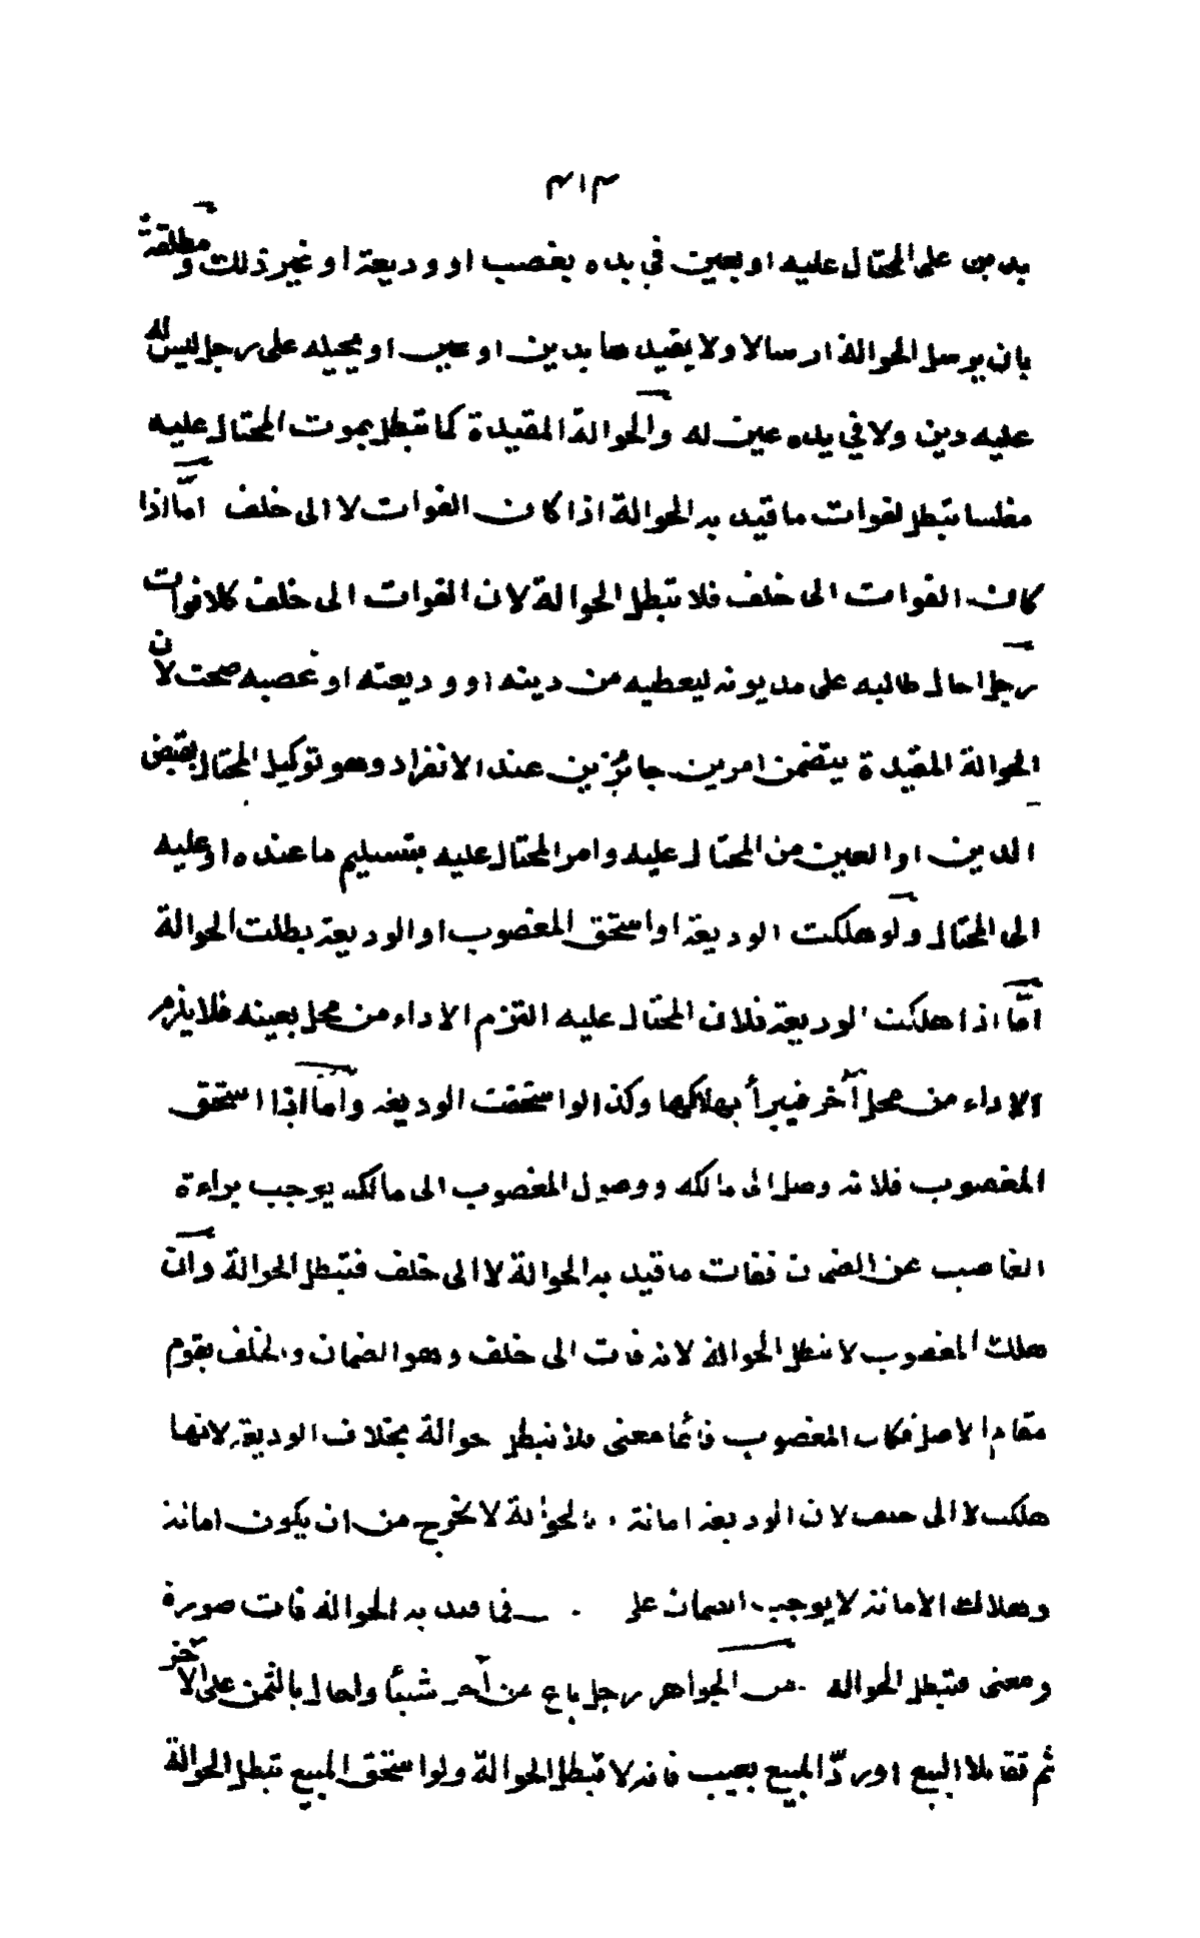 ٣١٣
بدين على المحتال عليه او بعين في يده بغصب او وديعة او غير ذلك ومطلقة
بان يرسل الحوالة ارسالا ولا يقيدها بدين او عين او يحيله على رجل ليس له
عليه دين ولا في يده عين له والحوالة المقيدة كما تبطل بموت المحتال عليه
مفلسا تبطل لفوات ما قيد به الحوالة اذا كان الفوات لا الى خلف امّا اذا
كان الفوات الى خلف فلا تبطل الحوالة لان الفوات الى خلف كلا فوات
رجل احال طالبه على مديونه ليعطيه من دينه او وديعته او غصبه صحت لان
الحوالة المقيدة يتضمن امرين جائزين عند الانفراد وهو توكيل المحتال بقبض
الدين او العين من المحتال عليه وامر المحتال عليه بتسليم ما عنده او عليه
الى المحتال ولو هلكت الوديعة او استحق المغصوب او الوديعة بطلت الحوالة
امّا اذا هلكت الوديعة فلان المحتال عليه التزم الاداء من محل بعينه فلا يلزم
الاداء من محل آخر فيبرأ بهلاكها وكذا لو استحقت الوديعة وامّا اذا استحق
المغصوب فلانه وصل الى مالكه ووصول المغصوب الى مالكه يوجب براءة
الغاصب عن الضمان ففات ما قيد به الحوالة لا الى خلف فتبطل الحوالة وان
هلك المغصوب لا تبطل الحوالة لانه فات الى خلف وهو الضمان والخلف يقوم
مقام الاصل فكان المغصوب قائما معنى فلا تبطل حوالة بخلاف الوديعة لانها
هلكت لا الى خلف لان الوديعة امانة والحوالة لا تخرج من ان يكون امانة
وهلاك الامانة لا يوجب الضمان على فما قيد به الحوالة فات صورة
ومعنى فتبطل الحوالة من الجواهر رجل باع من آخر شيئا واحال بالثمن على الآخر
ثم تقايلا البيع او ردّ المبيع بعيب فانه لا تبطل الحوالة ولو استحق المبيع تبطل الحوالة